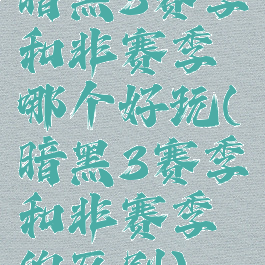 暗黑3赛季
和非赛季
哪个好玩(
暗黑3赛季
和非赛季
的区别)